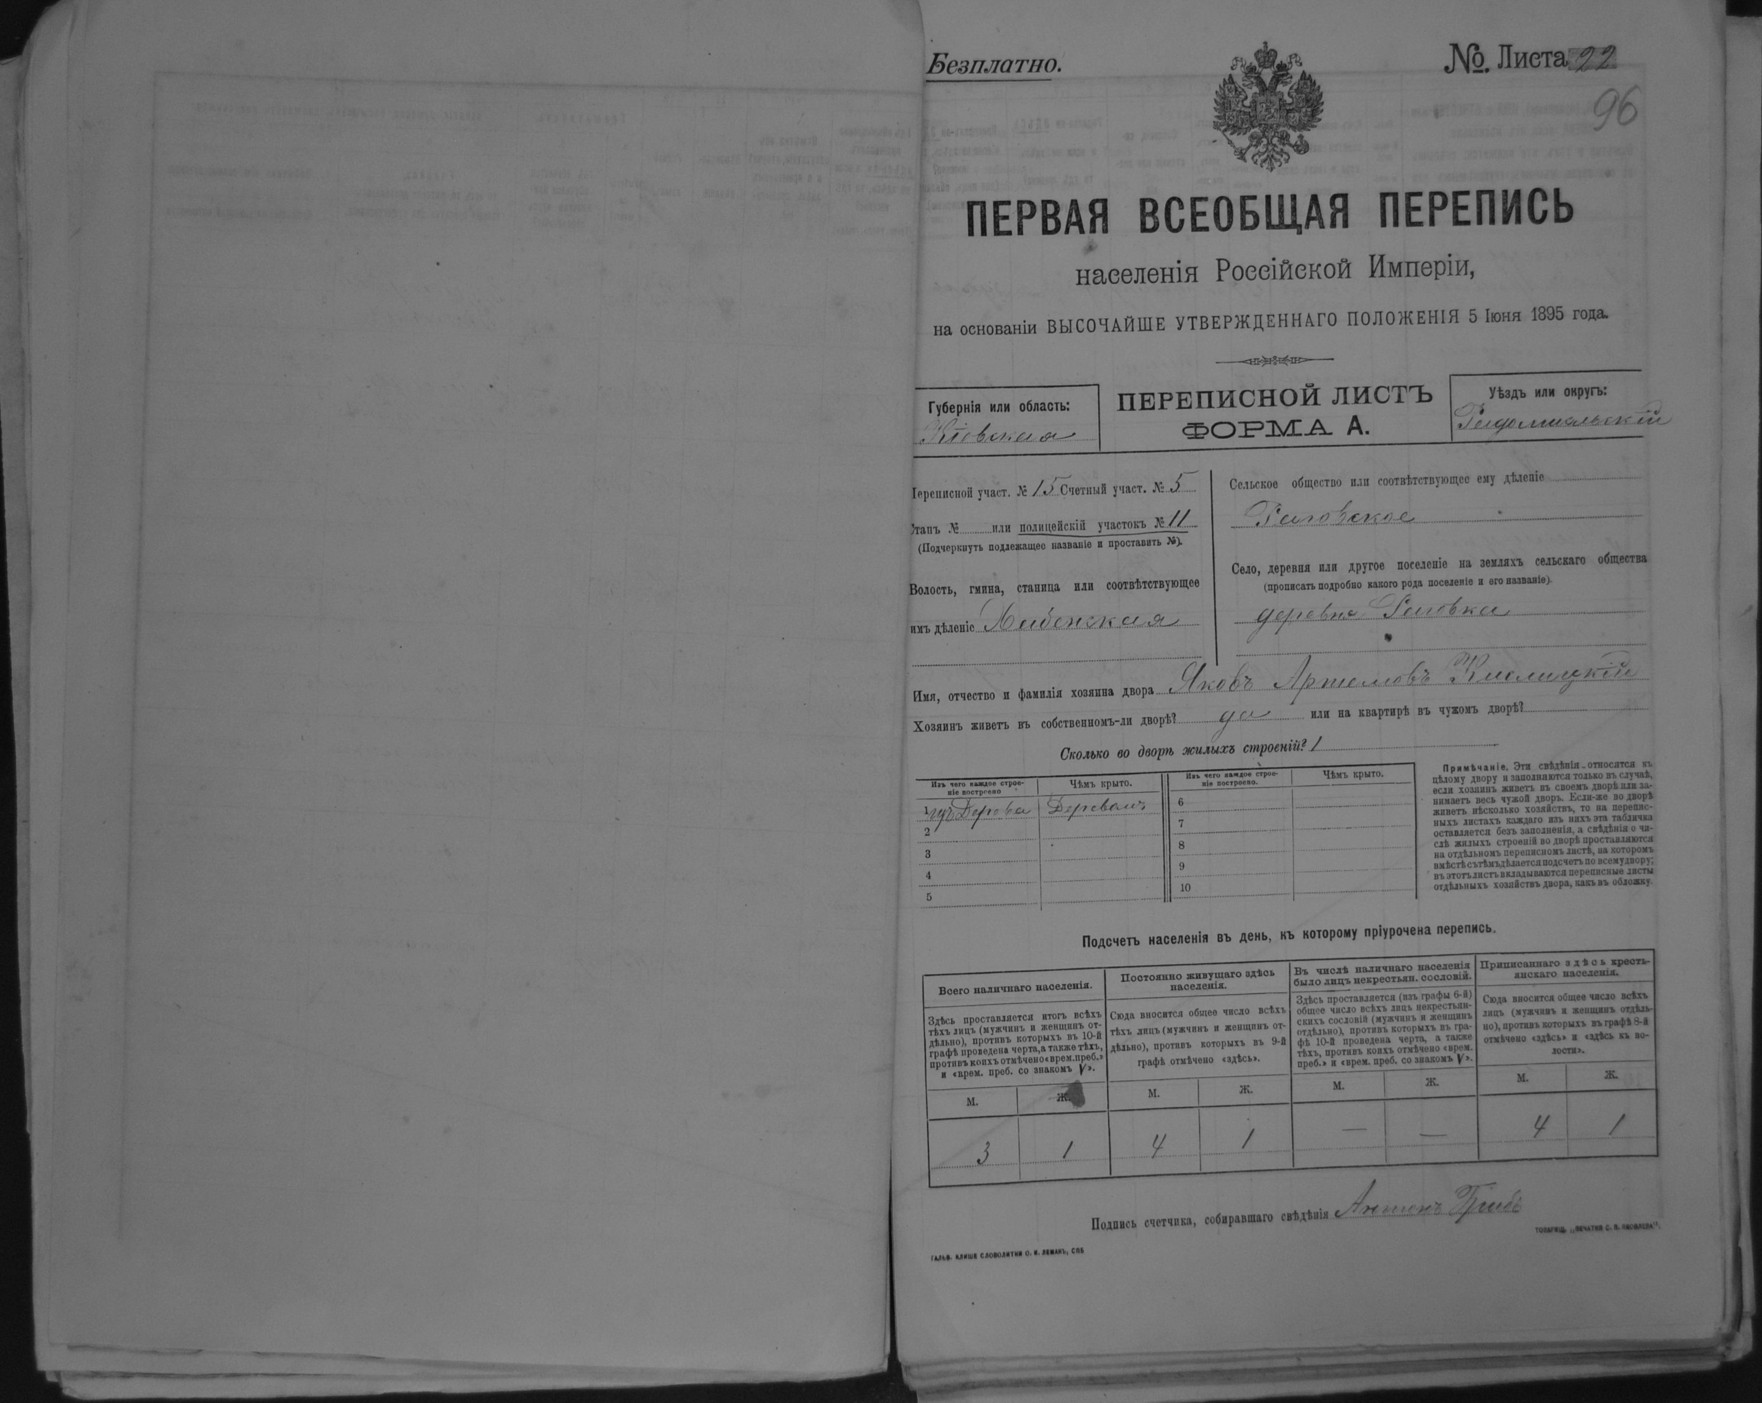 Безплатно.
№. Листа 22
96
ПЕРВАЯ ВСЕОБЩАЯ ПЕРЕПИСЬ
населенія Россійской Имперіи,
на основаніи ВЫСОЧАЙШЕ УТВЕРЖДЕННАГО ПОЛОЖЕНІЯ 5 Іюня 1895 года.
Губернія или область:
Кіевская
ПЕРЕПИСНОЙ ЛИСТЪ
ФОРМА А.
Уѣздъ или округъ:
Радомысльскій
Переписной участ. № 15 Счетный участ. № 5
Станъ № или полицейскій участокъ № 11
(Подчеркнуть подлежащее названіе и проставить №).
Волость, гмина, станица или соотвѣтствующее
имъ дѣленіе Хабенская
Сельское общество или соотвѣтствующее ему дѣленіе
Раговское
Село, деревня или другое поселеніе на земляхъ сельскаго общества
(прописать подробно какого рода поселеніе и его названіе).
деревня Раговка
Имя, отчество и фамилія хозяина двора Яковъ Артемовъ
Хозяинъ живетъ въ собственномъ-ли дворѣ? да или на квартирѣ въ чужомъ дворѣ?
Сколько во дворѣ жилыхъ строеній? 1
Изъ чего каждое строе-
ніе построено
Чѣмъ крыто.
Изъ чего каждое строе-
ніе построено.
Чѣмъ крыто.
1 изъ Дерева Деревомъ
2
3
4
5
6
7
8
9
10
Примѣчаніе. Эти свѣдѣнія относятся къ
цѣлому двору и заполняются только въ случаѣ,
если хозяинъ живетъ въ своемъ дворѣ или за-
нимаетъ весь чужой дворъ. Если-же во дворѣ
живетъ нѣсколько хозяйствъ, то на перепис-
ныхъ листахъ каждаго изъ нихъ эта табличка
оставляется безъ заполненія, а свѣдѣнія о чи-
слѣ жилыхъ строеній во дворѣ проставляются
на отдѣльномъ переписномъ листѣ, на которомъ
вмѣстѣ съ тѣмъ дѣлается подсчетъ по всему двору;
въ этотъ листъ вкладываются переписные листы
отдѣльныхъ хозяйствъ двора, какъ въ обложку.
Подсчетъ населенія въ день, къ которому пріурочена перепись.
Всего наличнаго населенія.
Здѣсь проставляется итогъ всѣхъ
тѣхъ лицъ (мужчинъ и женщинъ от-
дѣльно), противъ которыхъ въ 10-й
графѣ проведена черта, а также тѣхъ,
противъ коихъ отмѣчено «врем. преб.»
и «врем. преб. со знакомъ V».
М. Ж.
3 1
Постоянно живущаго здѣсь
населенія.
Сюда вносится общее число всѣхъ
тѣхъ лицъ (мужчинъ и женщинъ от-
дѣльно), противъ которыхъ въ 9-й
графѣ отмѣчено «здѣсь».
М. Ж.
4 1
Въ числѣ наличнаго населенія
было лицъ некрестьян. сословій.
Здѣсь проставляется (изъ графы 6-й)
общее число всѣхъ лицъ некрестьян-
скихъ сословій (мужчинъ и женщинъ
отдѣльно), противъ которыхъ въ гра-
фѣ 10-й проведена черта, а также
тѣхъ, противъ коихъ отмѣчено «врем.
преб.» и «врем. преб. со знакомъ V».
М. Ж.
— —
Приписаннаго здѣсь кресть-
янскаго населенія.
Сюда вносится общее число всѣхъ
лицъ (мужчинъ и женщинъ отдѣль-
но), противъ которыхъ въ графѣ 8-й
отмѣчено «здѣсь» и «здѣсь въ во-
лости».
М. Ж.
4 1
Подпись счетчика, собиравшаго свѣдѣнія Антонъ
ГАЛЬВ. КЛИШЕ СЛОВОЛИТНИ О. И. ЛЕМАНЪ, СПБ